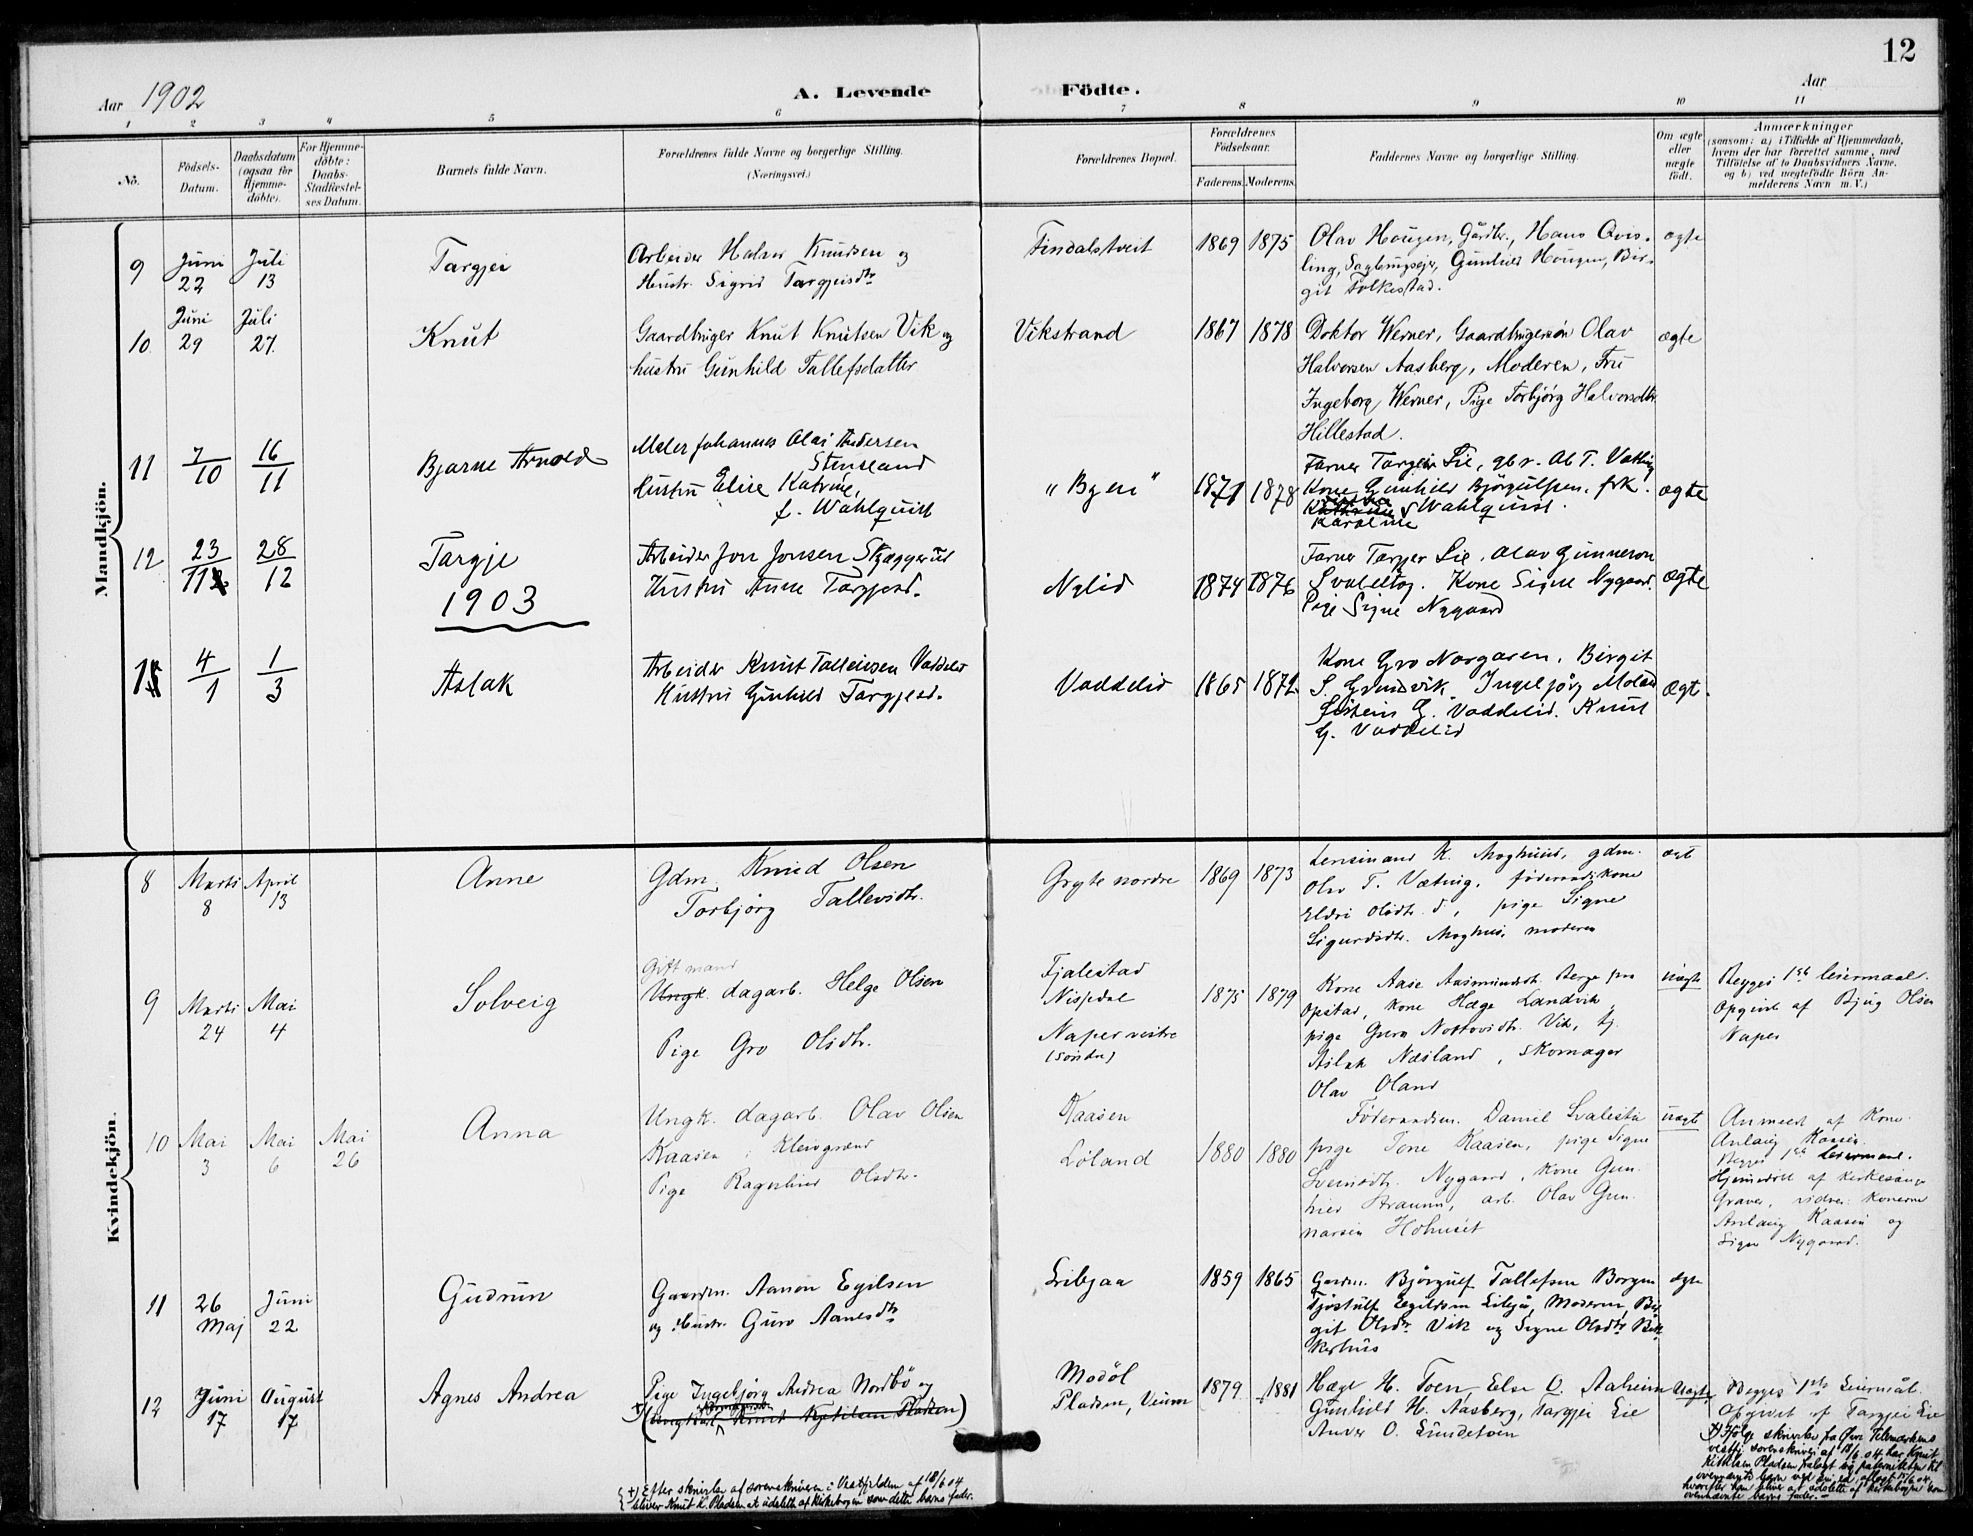 12
Aar 1902
A. Levende Födte.
Aar
1 2 3 4 5 6 7 8 9 10 11
No.
Födsels-Datum.
Daabsdatum (ogsaa for Hjemme-döbte).
For Hjemme-döbte: Daabs-Stadfæstel-ses Datum.
Barnets fulde Navn.
Forældrenes fulde Navne og borgerlige Stilling. (Næringsvei.)
Forældrenes Bopæl.
Forældrenes Födselsaar.
Faderens. Moderens.
Faddernes Navne og borgerlige Stilling.
Om ægte eller uægte födt.
Anmærkninger
(saasom: a) i Tilfælde af Hjemmedaab, hvem der har forrettet samme, med Tilföielse af to Daabsvidners Navne, og b) ved uægtefödte Börn An-melderens Navn m. V.)
Mandkjön.
9 Juni 22 Juli 13 Targjei
Arbeider Halvor Knudsen og
Hustr. Sigrid Targjeisdtr
Findalstveit 1869 1875
Olav Hougen, Gårdbr., Hans Qvis-
ling, Sagbrugsejer, Gunhild Hougen, Bir-
git Folkestad.
ægte
10. Juni 29 Juli 27. Knut
Gaardbruger Knut Knutsen Vik og
hustru Gunhild Tallefsdatter
Vikstrand 1867 1878
Doktor Werner, Gaardbrugersön Olav
Halvorsen Aasberg, Moderen, Fru
Ingeborg Werner, Pige Torbjörg Halvorsdtr.
Hillestad.
ægte
11 7/10 16/11 Bjarne Arnold
Maler Johannes Olai Andersen
Stensland
Hustru Elise Katrine,
f. Wahlquist
"Byen" 1871 1878
Farver Targjei Lie, gbr. Ab T. Vatling
Kone Gunhild Björgulfsen, frk.
Karoline Wahlquist.
ægte
12 23/11 28/12 Targje
Arbeider Jon Jonsen Skæggerud
Hustru Anne Targjesd.
Nylid 1874 1876
Farver Targjer Lie, Olav Gunnerson
Svalestog. Kone Signe Nygaard.
Pige Signe Nygaard
ægte
1903
1 4/1 1/3 Aslak
Arbeider Knut Talleivsen Vaddelid
Hustru Gunhild Targjesd.
Vaddelid 1865 1872
Kone Gro Norgaren, Birgit
S. Grundvik. Ingebjörg Moland
Eistein G. Vaddelid. Knut
G. Vaddelid
Ægt.
Kvindekjön.
8 Marts 8 April 13 Anne
Gdm. Knud Olsen
Torbjörg Tallevidtr.
Gryte nordre 1869 1873
Lensmand K. Moghus, gdm.
Olav T. Væting, föderaadskone
Eldri Olsdtr. d, pige Signe
Sigurdsdtr. Moghus, moderen
ægt
9 Marts 24 Mai 4 Solveig
Gift mand
Ungk. dagarb. Helge Olsen
Pige Gro Olsdtr.
Fjalestad
Nissedal
Naper vestre
(söndre)
1875 1879
Kone Aase Aasmundsdtr. Berge paa
Opstad, kone Hæge Landvik,
pige Guro Vik, tj.
Aslak Næsland, skomager
Olav Oland
uægte
Begges 1ste leiermaal.
Opgivet af Bjug Olsen
Naper
10 Mai 3 Mai 6 Mai 26 Anna
Ungk. dagarb. Olav Olsen
Kaasen i Kleivgrend
Pige Ragnhild Olsdtr.
Kaasen
Löland
1880 1880
Föderaadsm. Daniel Svalestu
pige Tone Kaasen, pige Signe
Svensdtr. Nygaard, kone Gun-
hild Straum, arb. Olav Gun-
narsen Hohuset
uægt
Anmeldt af Kone
Anlaug Kaasen.
Begges 1ste Leiermaal.
Hjemmedöbt af kirkesanger
Graver, vidner: konerne
Anlaug Kaasen og
Signe Nygaard.
11 26 Maj Juni 22 Gudrun
Gaardm. Aanon Egilsen
og Hustr. Guro Aanesdtr
Libjaa 1859 1865
Gardm. Björgulf Tallefsen Borgen
Tjöstulf Egildsen Libjå, Moderen, Bir-
git Olsdtr. Vik og Signe Olsdtr. Bak-
kerhus
ægte
12 Juni 17 August 17 Agnes Andrea
Pige Ingebjörg Andrea Nordbö og
+) (Ungkarl Knut Kjetilsen Pladsen)
Modöl
Pladsen, Veum
1879 1881
Hæge H. Toen, Else O. Aaheim
Gunhild H. Aasberg, Targjei Lie
Anver O. Lundetoen
uægte
Begges 1ste Leiermål.
Opgivet af Targjei Lie
+) Ifölge skrivelse fra Övre Telemarkens
vestfj. sorenskriveri af 18/6 04 har Knut
Kittilsen Pladsen fralagt sig paterniteten til
ovennævnte barn ved ed, aflagt 15/6 04,
hvorefter han bliver at udslette af kirkebogen som
ovennævnte barns fader.—
+) Efter skrivelse af sorenskriveren i Vestfjeldene af 18/6 04
bliver Knut K. Pladsen at udslette af kirkebogen som dette barns fader.